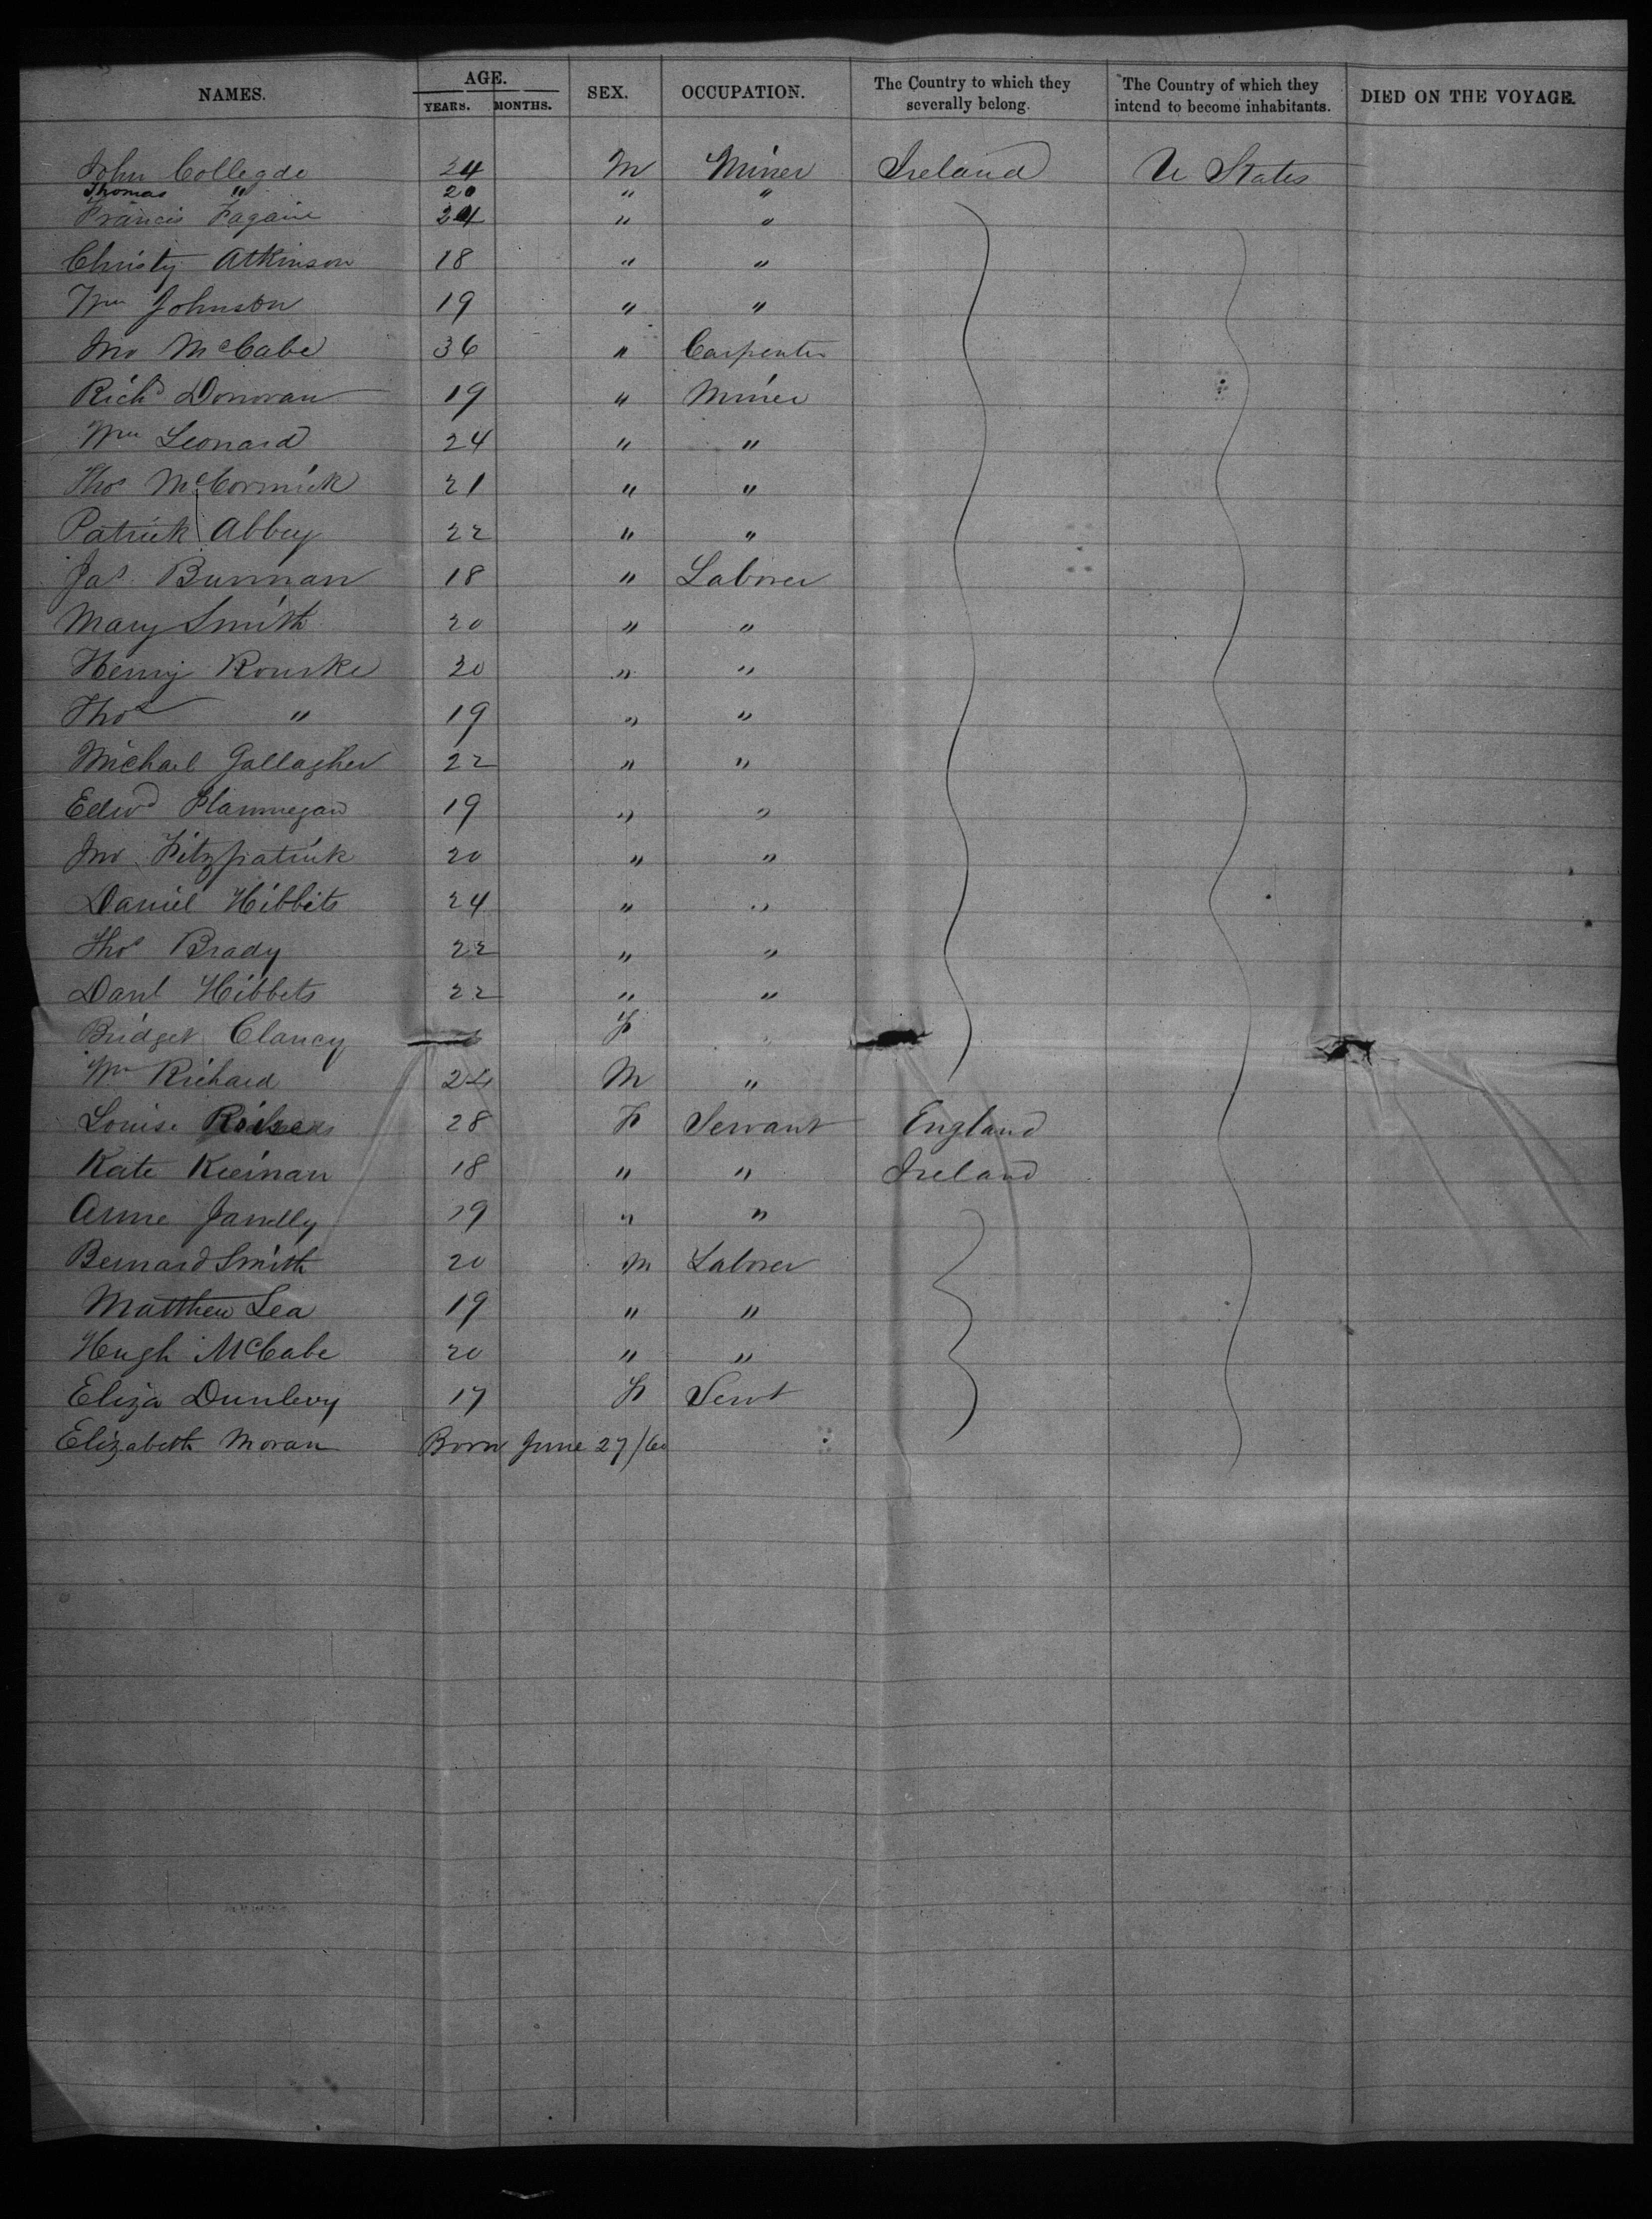 NAMES. AGE. YEARS. MONTHS. SEX. OCCUPATION. The Country to which they severally belong. The Country of which they intend to become inhabitants. DIED ON THE VOYAGE.
John Collegde 24 M Miner Ireland U States
Thomas " 20 " "
Francis Fagain 24 " "
Christy Atkinson 18 " "
Wm Johnston 19 " "
Jno McCabe 36 " Carpenter
Richd Donovan 19 " Miner
Wm Leonard 24 " "
Thos McCormick 21 " "
Patrick Abbey 22 " "
Jas. Burman 18 " Laborer
Mary Smith 20 " "
Henry Rourke 20 " "
Thos " 19 " "
Michael Gallagher 22 " "
Edwd Flannnegan 19 " "
Jno Fitzpatrick 20 " "
Daniel Hibbits 24 " "
Thos Brady 22 " "
Danl Hibbets 22 " "
Bridget Clancy F
Wm Richard 24 M "
Louise 28 F Servant England
Kate Keirnan 18 " " Ireland
Anne Janelly 19 " "
Bernard Smith 20 M Laborer
Matthew Lea 19 " "
Hugh McCabe 20 " "
Eliza Dunlevy 17 F Servt
Elizabeth Moran Born June 27/60